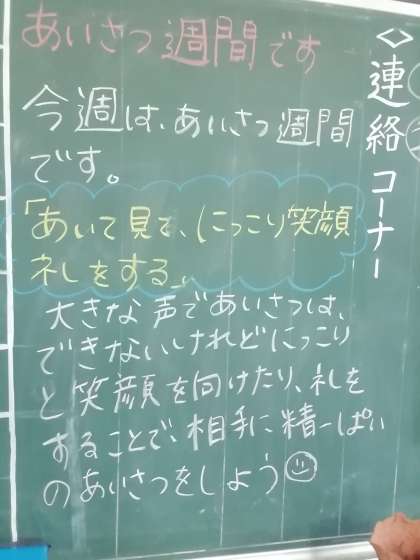 <>連絡コーナー
あいさつ週間です
今週は、あいさつ週間
です。
「あいて見て、にっこり笑顔
礼をする」
大きな声であいさつは、
できないけれどにっこり
と笑顔を向けたり、礼を
することで、相手に精一ぱい
のあいさつをしよう